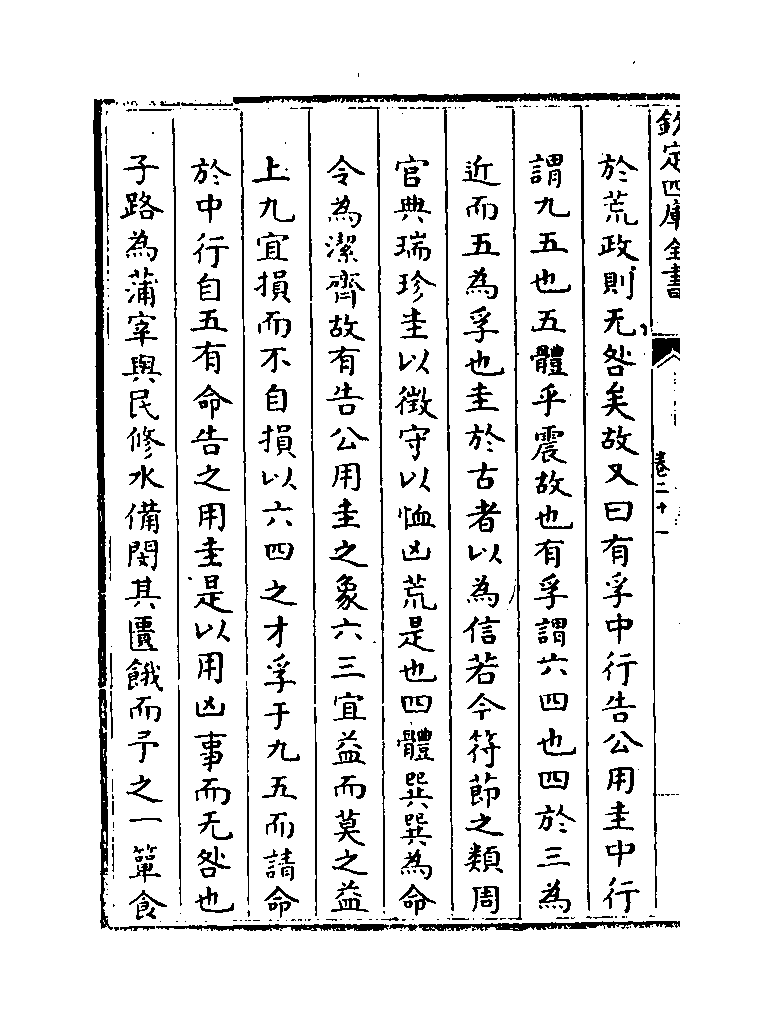 欽定四庫全書
卷二十一
於荒政則无咎矣故又曰有孚中行告公用圭中行
謂九五也五體乎震故也有孚謂六四也四於三為
近而五為孚也圭於古者以為信若今符節之類周
官典瑞珍圭以徴守以恤凶荒是也四體巽巽為命
令為潔齊故有告公用圭之象六三宜益而莫之益
上九宜損而不自損以六四之才孚于九五而請命
於中行自五有命告之用圭是以用凶事而无咎也
子路為蒲宰與民修水備閔其匱餓而予之一簞食